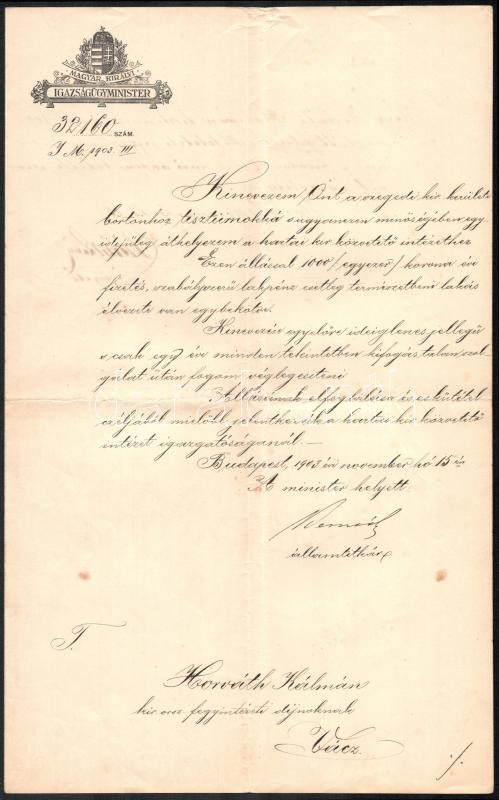 MAGYAR KIRÁLYI
IGAZSÁGÜGYMINISTER
32160 SZÁM.
I. M. 1903. III
Kinevezem Önt a szegedi kir kerületi
börtönhöz tisztiirnokká s ugyanezen minőségben egy-
idejüleg áthelyezem a hartai kir közvetitő intézethez
Ezen állással 1000 /egyezer/ korona évi
fizetés, szabályszerü lakpénz esetleg természetbeni lakás
élvezete van egybekötve.
Kinevezése egyelőre ideiglenes jellegü
s csak egy év minden tekintetben kifogástalan szol-
gálat után fogom véglegesiteni
Állásának elfoglalása és eskütétel
czéljából mielőbb jelentkezzék a hartai kir közvetitő
intézet igazgatóságánál.—
Budapest, 1903 évi november hó 15 én
A minister helyett:
államtitkár
T.
Horváth Kálmán
kir orsz. fegyintézeti dijnoknak
Vácz.
./.